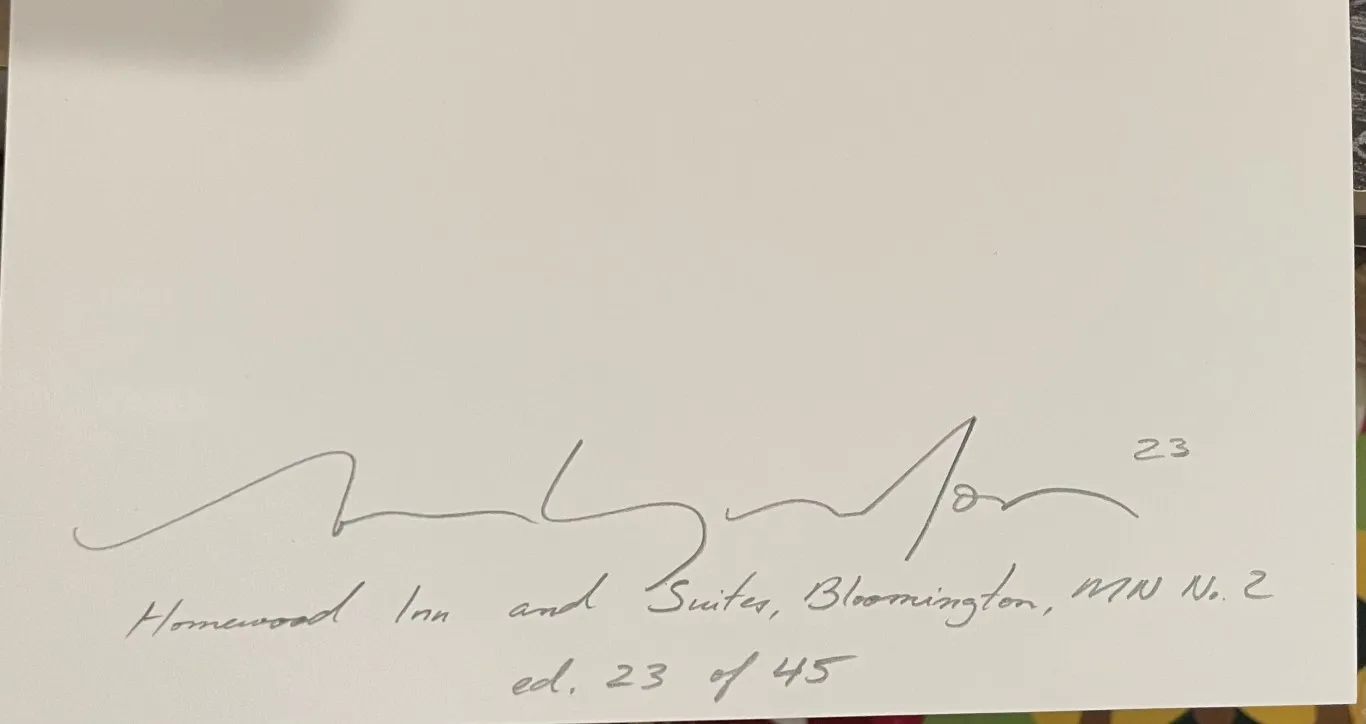 23
Homewood Inn and Suites, Bloomington, MN No. 2
ed. 23 of 45